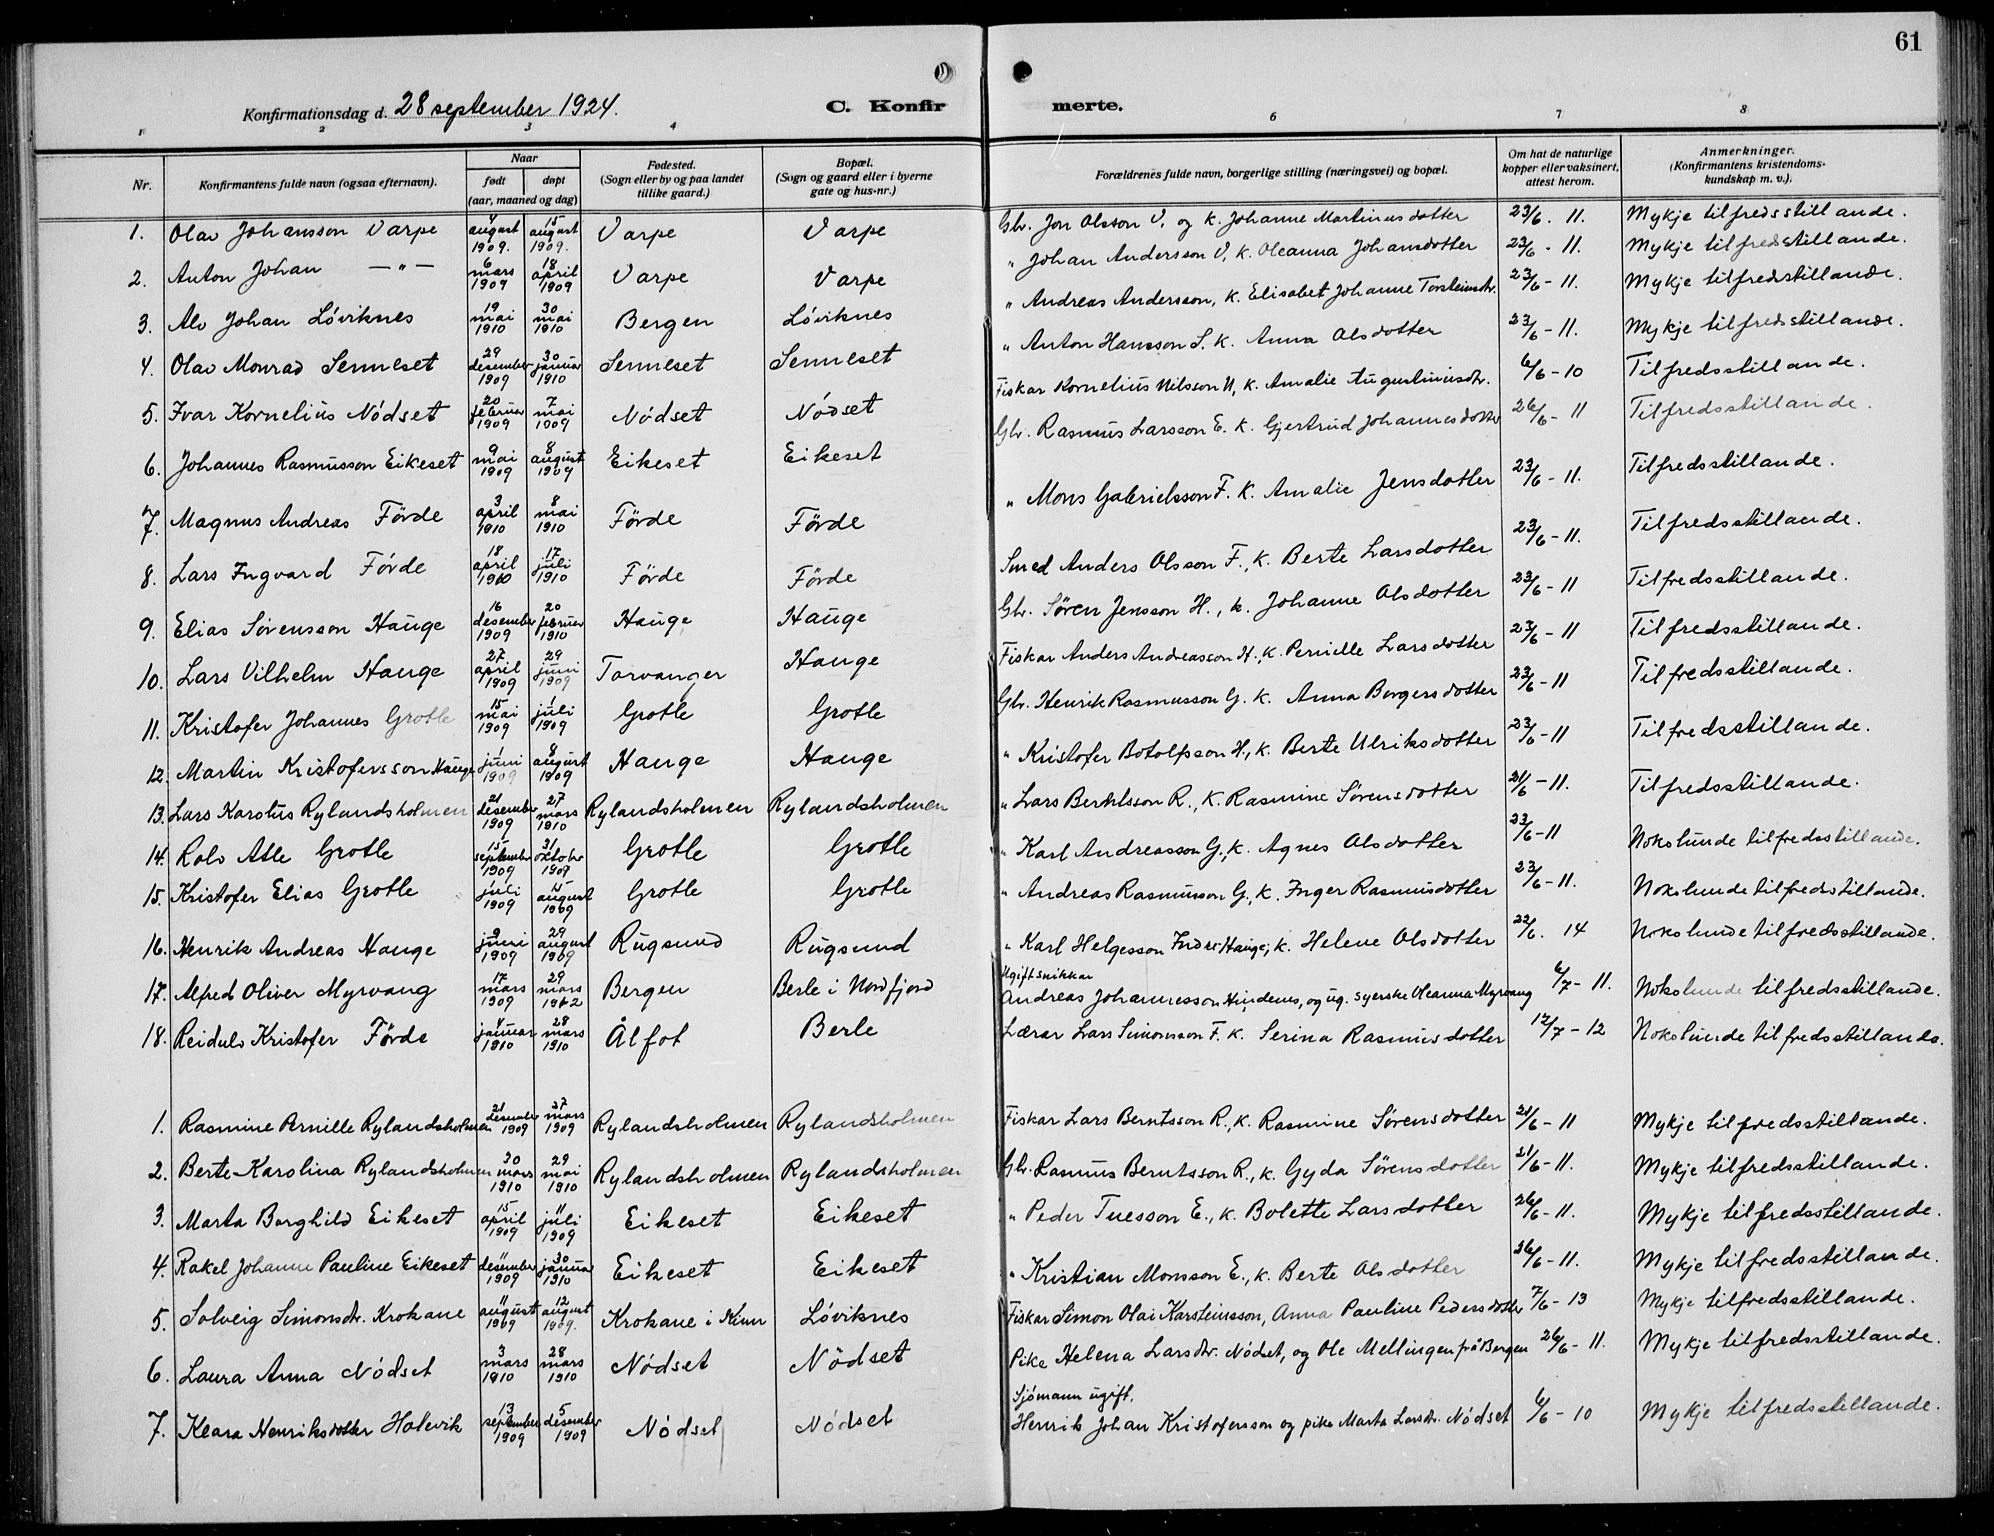 61
Konfirmationsdag d. 28 september 1924. C. Konfir merte.
1 2 3 4 6 7 8
Nr. Konfirmantens fulde navn (ogsaa efternavn). Naar født døpt (aar, maaned og dag) Fødested. (Sogn eller by og paa landet tillike gaard.) Bopæl. (Sogn og gaard eller i byerne gate og hus-nr.) Forældrenes fulde navn, borgerlige stilling (næringsvei) og bopæl. Om hat de naturlige kopper eller vaksinert, attest herom. Anmerkninger. (Konfirmantens kristendoms-kundskap m. v.).
1. Olav Johansson Varpe 4 august 1909. 15 august 1909. Varpe Varpe Gbr. Jon Olsson V. og k. Johanne Martinusdotter 23/6. 11. Mykje tilfredsstillande.
2. Anton Johan —„— 6 mars 1909 18 april 1909 Varpe Varpe „ Johan Andersson V, k. Oleanna Johansdotter 23/6 - 11. Mykje tilfredsstillande.
3. Alv Johan Løviknes 19 mai 1910 30 mai 1910 Bergen Løviknes „ Andreas Andersson, k. Elisabet Johanne Torsteinsdr. 23/6 - 11. Mykje tilfredstillande.
4. Olav Monrad Senneset 29 desember 1909 30 januar 1910 Senneset Senneset „ Anton Hansson S. k. Anna Olsdotter 23/6 - 11. Mykje tilfredsstillande.
5. Ivar Kornelius Nödset 20 februar 1909 7 mai 1909 Nödset Nödset Fiskar Kornelius Nilsson N, k. Amalie Augustinusdr. 6/6 - 10 Tilfredsstillande.
6. Johannes Rasmusson Eikeset 9 mai 1909 8 august 1909 Eikeset Eikeset Gbr. Rasmus Larsson E. k. Gjertrud Johannesdotter 26/6 - 11 Tilfredsstillande.
7. Magnus Andreas Förde 3 april 1910 8 mai 1910 Förde Förde „ Mons Gabrielsson F. k. Amalie Jensdotter 23/6 - 11. Tilfredsstillande.
8. Lars Ingvard Förde 18 april 1910 17 juli 1910 Förde Förde Smed Anders Olsson F., k. Berte Larsdotter 23/6 - 11. Tilfredsstillande.
9. Elias Sørensson Hauge 16 desember 1909 20 februar 1910 Hauge Hauge Gbr. Søren Jensson H., k. Johanne Olsdotter 23/6 - 11 Tilfredsstillande.
10. Lars Vilhelm Hauge 27 april 1909 29 juni 1909 Torvanger Hauge Fiskar Anders Andreasson H., k. Pernille Larsdotter 23/6 - 11 Tilfredsstillande.
11. Kristofer Johannes Grotle 15 mai 1909 1 juli 1909 Grotle Grotle Gbr. Henrik Rasmusson G. k. Anna Borgersdotter 23/6 - 11 Tilfredsstillande.
12. Martin Kristofersson Hauge 1 juni 1909 8 august 1909 Hauge Hauge „ Kristofer Botolfsson H., k. Berte Ulriksdotter 23/6 - 11 Tilfredsstillande.
13. Lars Karolus Rylandsholmen 21 desember 1909 27 mars 1910 Rylandsholmen Rylandsholmen „ Lars Berntsson R., k. Rasmine Sørensdotter 21/6 - 11. Tilfredsstillande.
14. Rolv Atle Grotle 15 september 1909 31 oktobr 1909 Grotle Grotle „ Karl Andreasson G., k. Agnes Olsdotter 23/6 - 11 Nokolunde tilfredsstillande.
15. Kristofer Elias Grotle 1 juli 1909 15 august 1909 Grotle Grotle „ Andreas Rasmusson G., k. Inger Rasmusdotter 23/6 - 11. Nokolunde tilfredsstillande.
16. Henrik Andreas Hauge 9 juni 1909 29 august 1909 Rugsund Rugsund „ Karl Helgesson Indre Hauge, k. Helene Olsdotter 22/6. 14 Nokolunde tilfredsstillande.
17. Alfred Oliver Myrvang 17 mars 1909 29 mars 1912 Bergen Berle i Nordfjord Ugift snikkar Andreas Johannesson Hindenes, og ug. syerske Oleanna Myrvang 6/7 - 11. Nokolunde tilfredsstillande.
18. Reidulv Kristofer Förde 4 januar 1910 28 mars 1910 Ålfot Berle Lærar Lars Simonsson F. k. Serina Rasmusdotter 12/7 - 12 Nokolunde tilfredsstillande.
1. Rasmine Pernille Rylandsholmen 21 desember 1909 27 mars 1909 Rylandsholmen Rylandsholmen Fiskar Lars Berntsson R., k. Rasmine Sørensdotter 21/6 - 11 Mykje tilfredsstillande.
2. Berte Karolina Rylandsholmen 30 mars 1910 29 mai 1910 Rylandsholmen Rylandsholmen Gbr. Rasmus Berntsson R., k. Gyda Sørensdotter 21/6 - 11. Mykje tilfredsstillande.
3. Marta Borghild Eikeset 15 april 1909 11 juli 1909 Eikeset Eikeset „ Peder Tuesson E., k. Bolette Larsdotter 26/6 - 11. Mykje tilfredsstillande.
4. Rakel Johanne Pauline Eikeset 11 desember 1909 30 januar 1910 Eikeset Eikeset „ Kristian Monsson E., k. Berte Olsdotter 26/6 - 11. Mykje tilfredsstillande.
5. Solveig Simonsdr. Krokane 11 august 1909 12 august 1909. Krokane i Kinn Løviknes Fiskar Simon Olai Karsteinsson, Anna Pauline Pedersdotter 7/6 - 13 Mykje tilfredsstillande.
6. Laura Anna Nödset 3 mars 1910 28 mars 1910 Nödset Nödset Pike Helena Larsdr. Nödset, og Ole Mellingen frå Bergen 26/6 - 11. Mykje tilfredsstillande.
7. Klara Henriksdotter Holevik 13 september 1909 5 desember 1909 Nödset Nödset Sjömann ugift. Henrik Johan Kristofersson og pike Marta Larsdr. Nödset 6/6 - 10 Mykje tilfredsstillande.